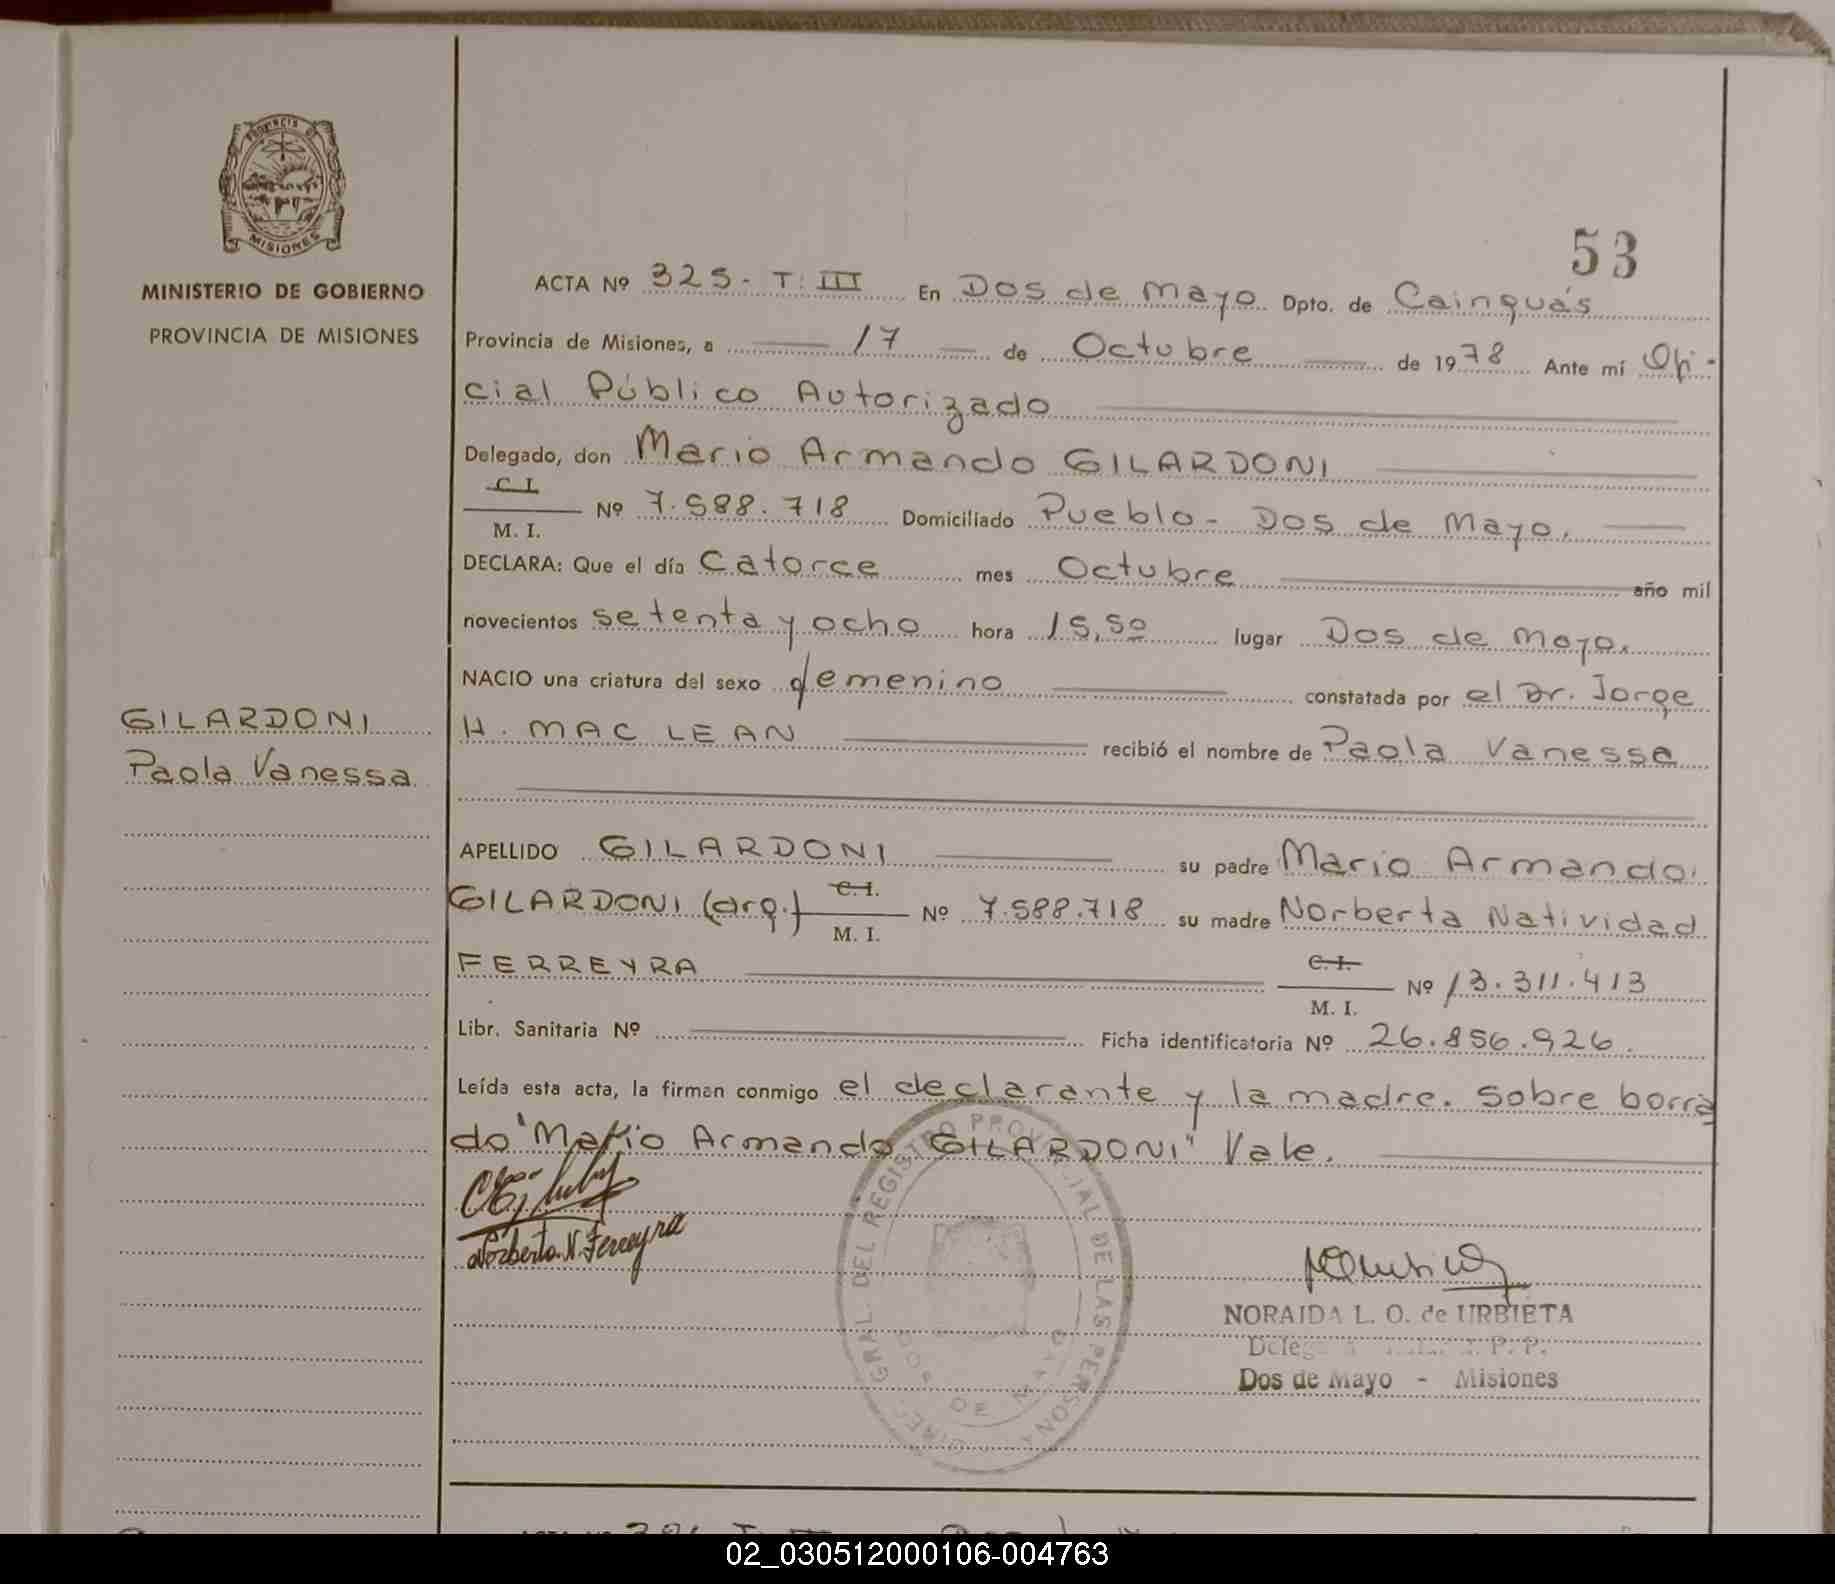 PROVINCIA DE
MISIONES
MINISTERIO DE GOBIERNO
PROVINCIA DE MISIONES
GILARDONI
Paola Vanessa
53
ACTA Nº 325- T: III En Dos de Mayo Dpto. de Cainguás
Provincia de Misiones, a 17 de Octubre de 1978 Ante mí Ofi-
cial Público Autorizado
Delegado, don Mario Armando GILARDONI
C.I.
M. I. Nº 7.588.718 Domiciliado Pueblo - Dos de Mayo.
DECLARA: Que el día Catorce mes Octubre año mil
novecientos setenta y ocho hora 15,50 lugar Dos de Mayo.
NACIO una criatura del sexo femenino constatada por el Dr. Jorge
H. MAC LEAN recibió el nombre de Paola Vanessa
APELLIDO GILARDONI su padre Mario Armando
GILARDONI (arg.) C.I. M. I. Nº 7.588.718 su madre Norberta Natividad
FERREYRA C.I. M. I. Nº 13.311.413
Libr. Sanitaria Nº Ficha identificatoria Nº 26.856.926.
Leída esta acta, la firman conmigo el declarante y la madre. Sobre borra
do "Mario Armando GILARDONI" Vale.
Norberta N. Ferreyra
DIREC. GRAL. DEL REGISTRO PROVINCIAL DE LAS PERSONAS
DOS DE MAYO
NORAIDA L. O. de URBIETA
P. P.
Dos de Mayo - Misiones
02_030512000106-004763